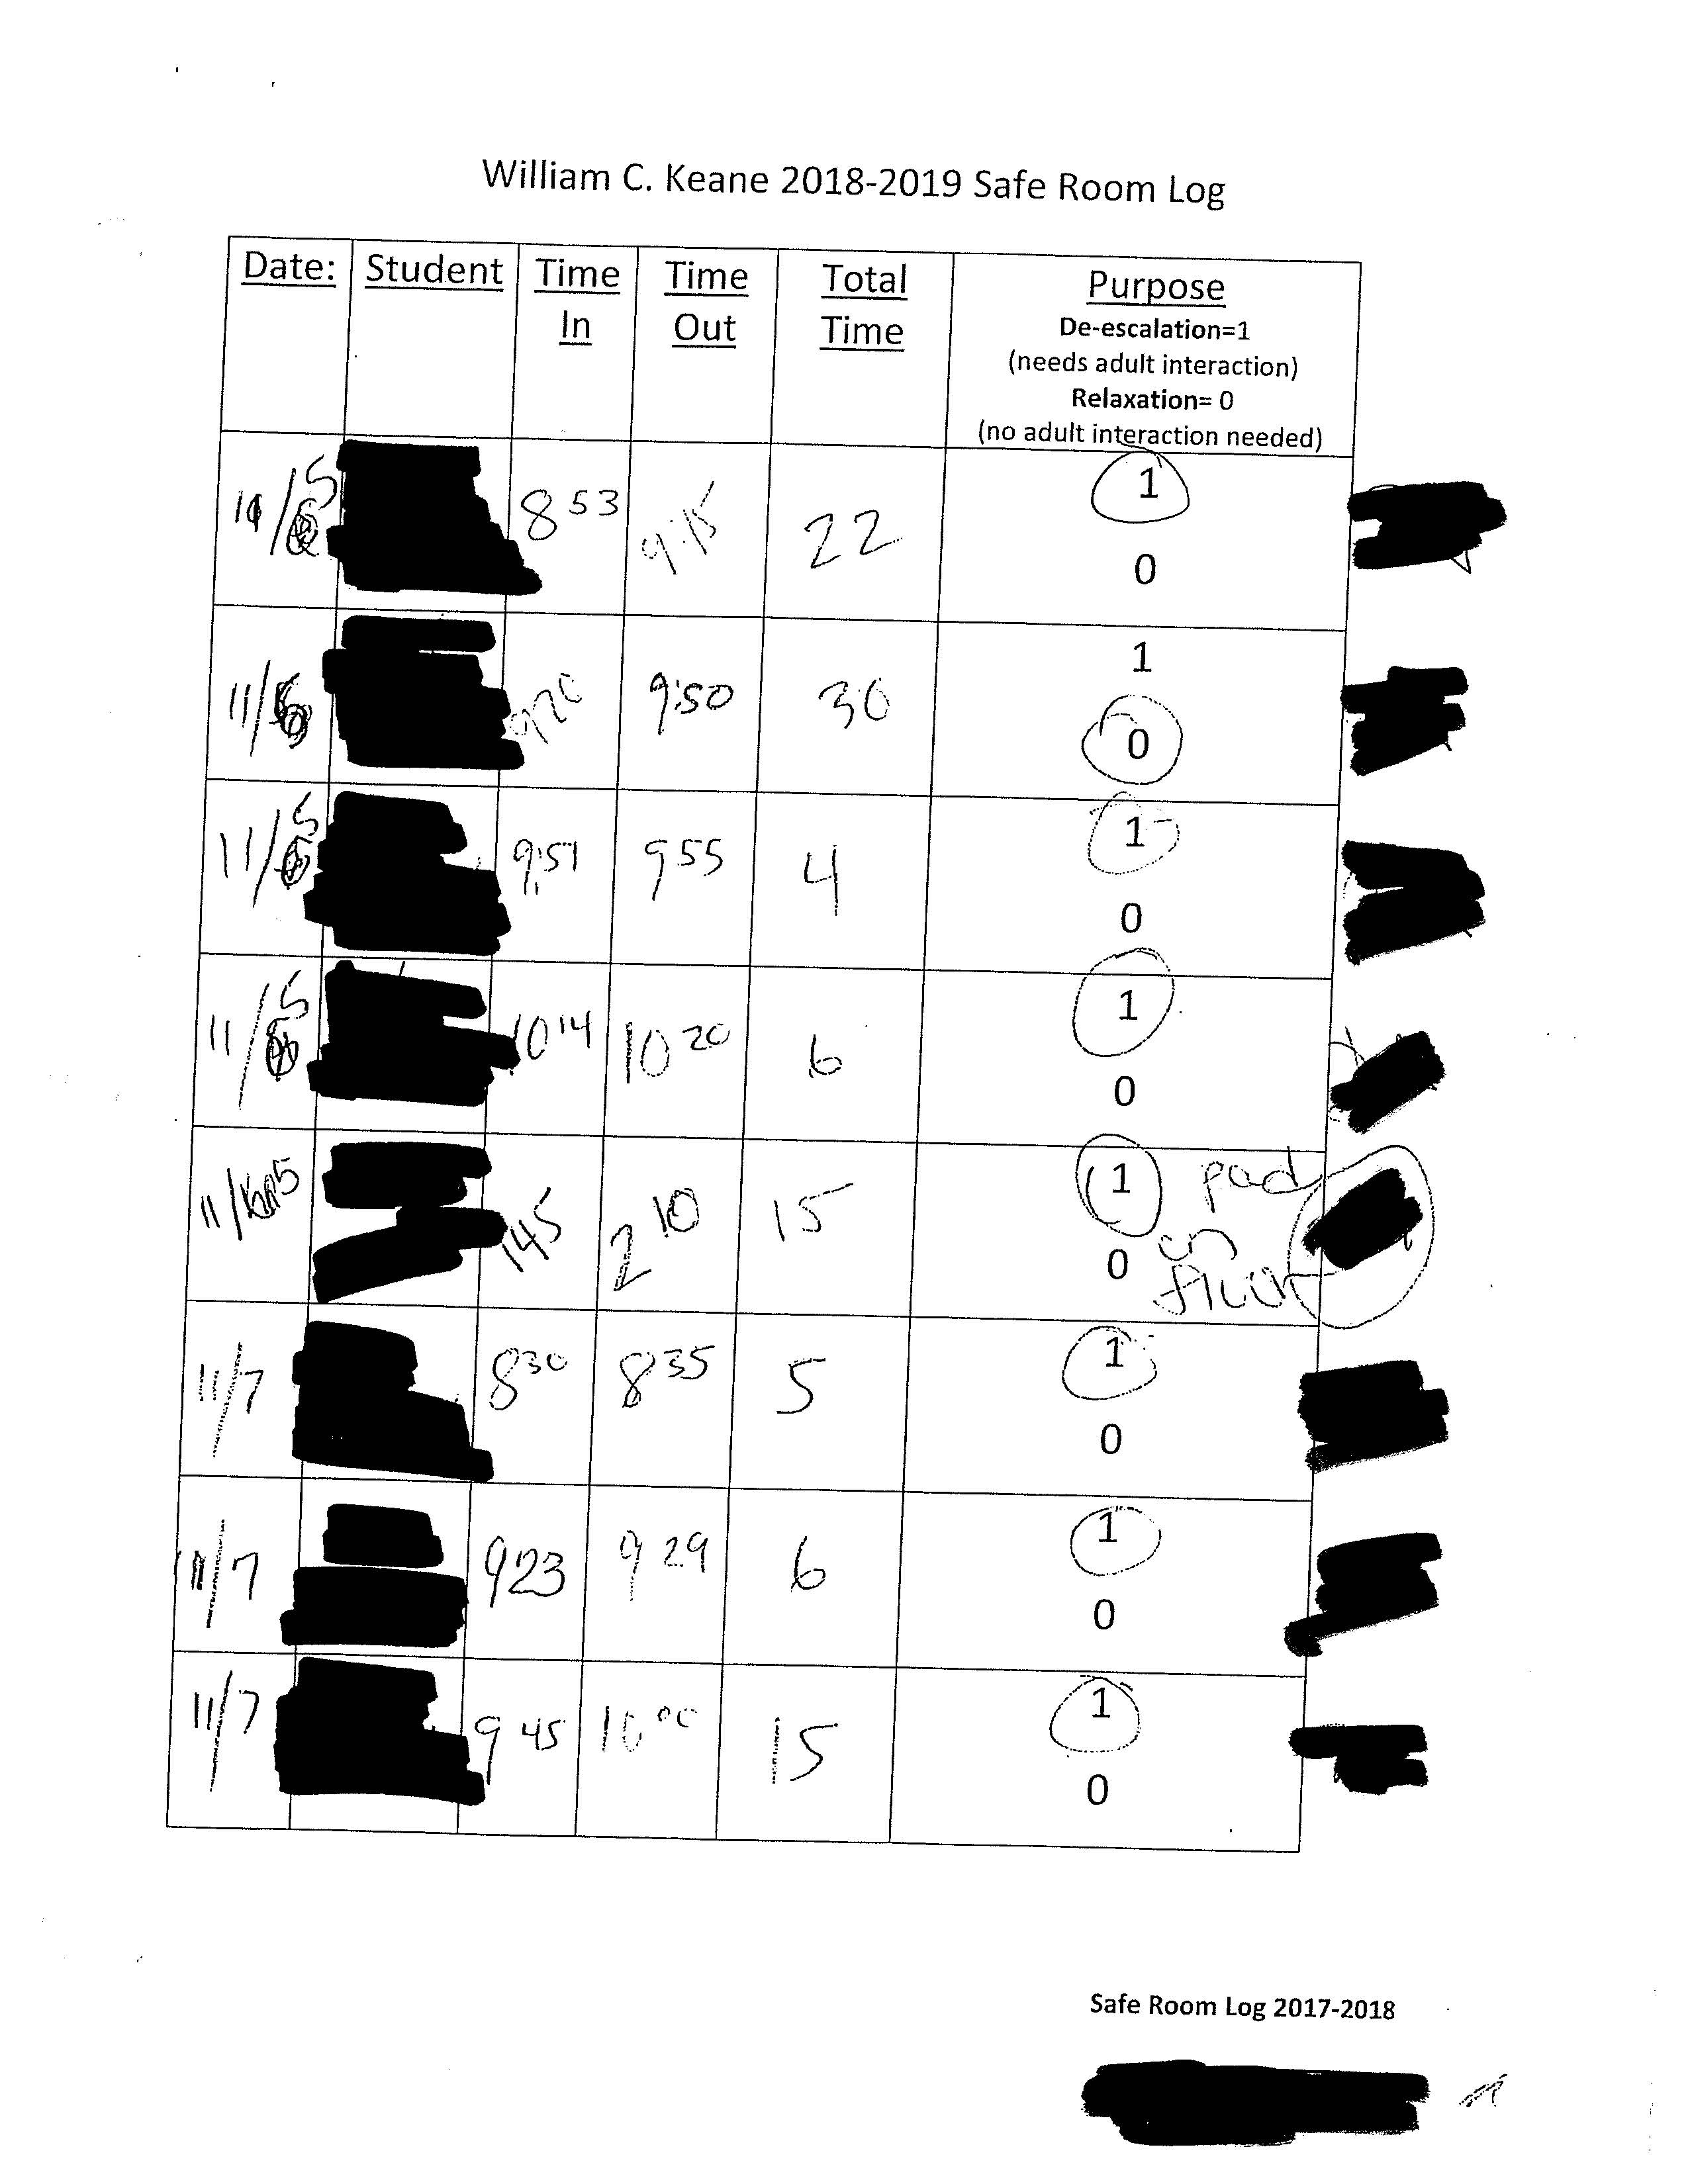 William C. Keane 2018-2019 Safe Room Log
Date: Student Time In Time Out Total Time Purpose
De-escalation=1
(needs adult interaction)
Relaxation= 0
(no adult interaction needed)
11/5 8 53 9:15 22 1
0
11/ 920 9:50 30 1
0
11/5 9:51 9 55 4 1
0
11/5 10 14 10 20 6 1
0
11/5 145 2 10 15 1 pad
0 floor
11/7 8 30 8 35 5 1
0
11/7 923 9 29 6 1
0
11/7 9 45 10 00 15 1
0
Safe Room Log 2017-2018